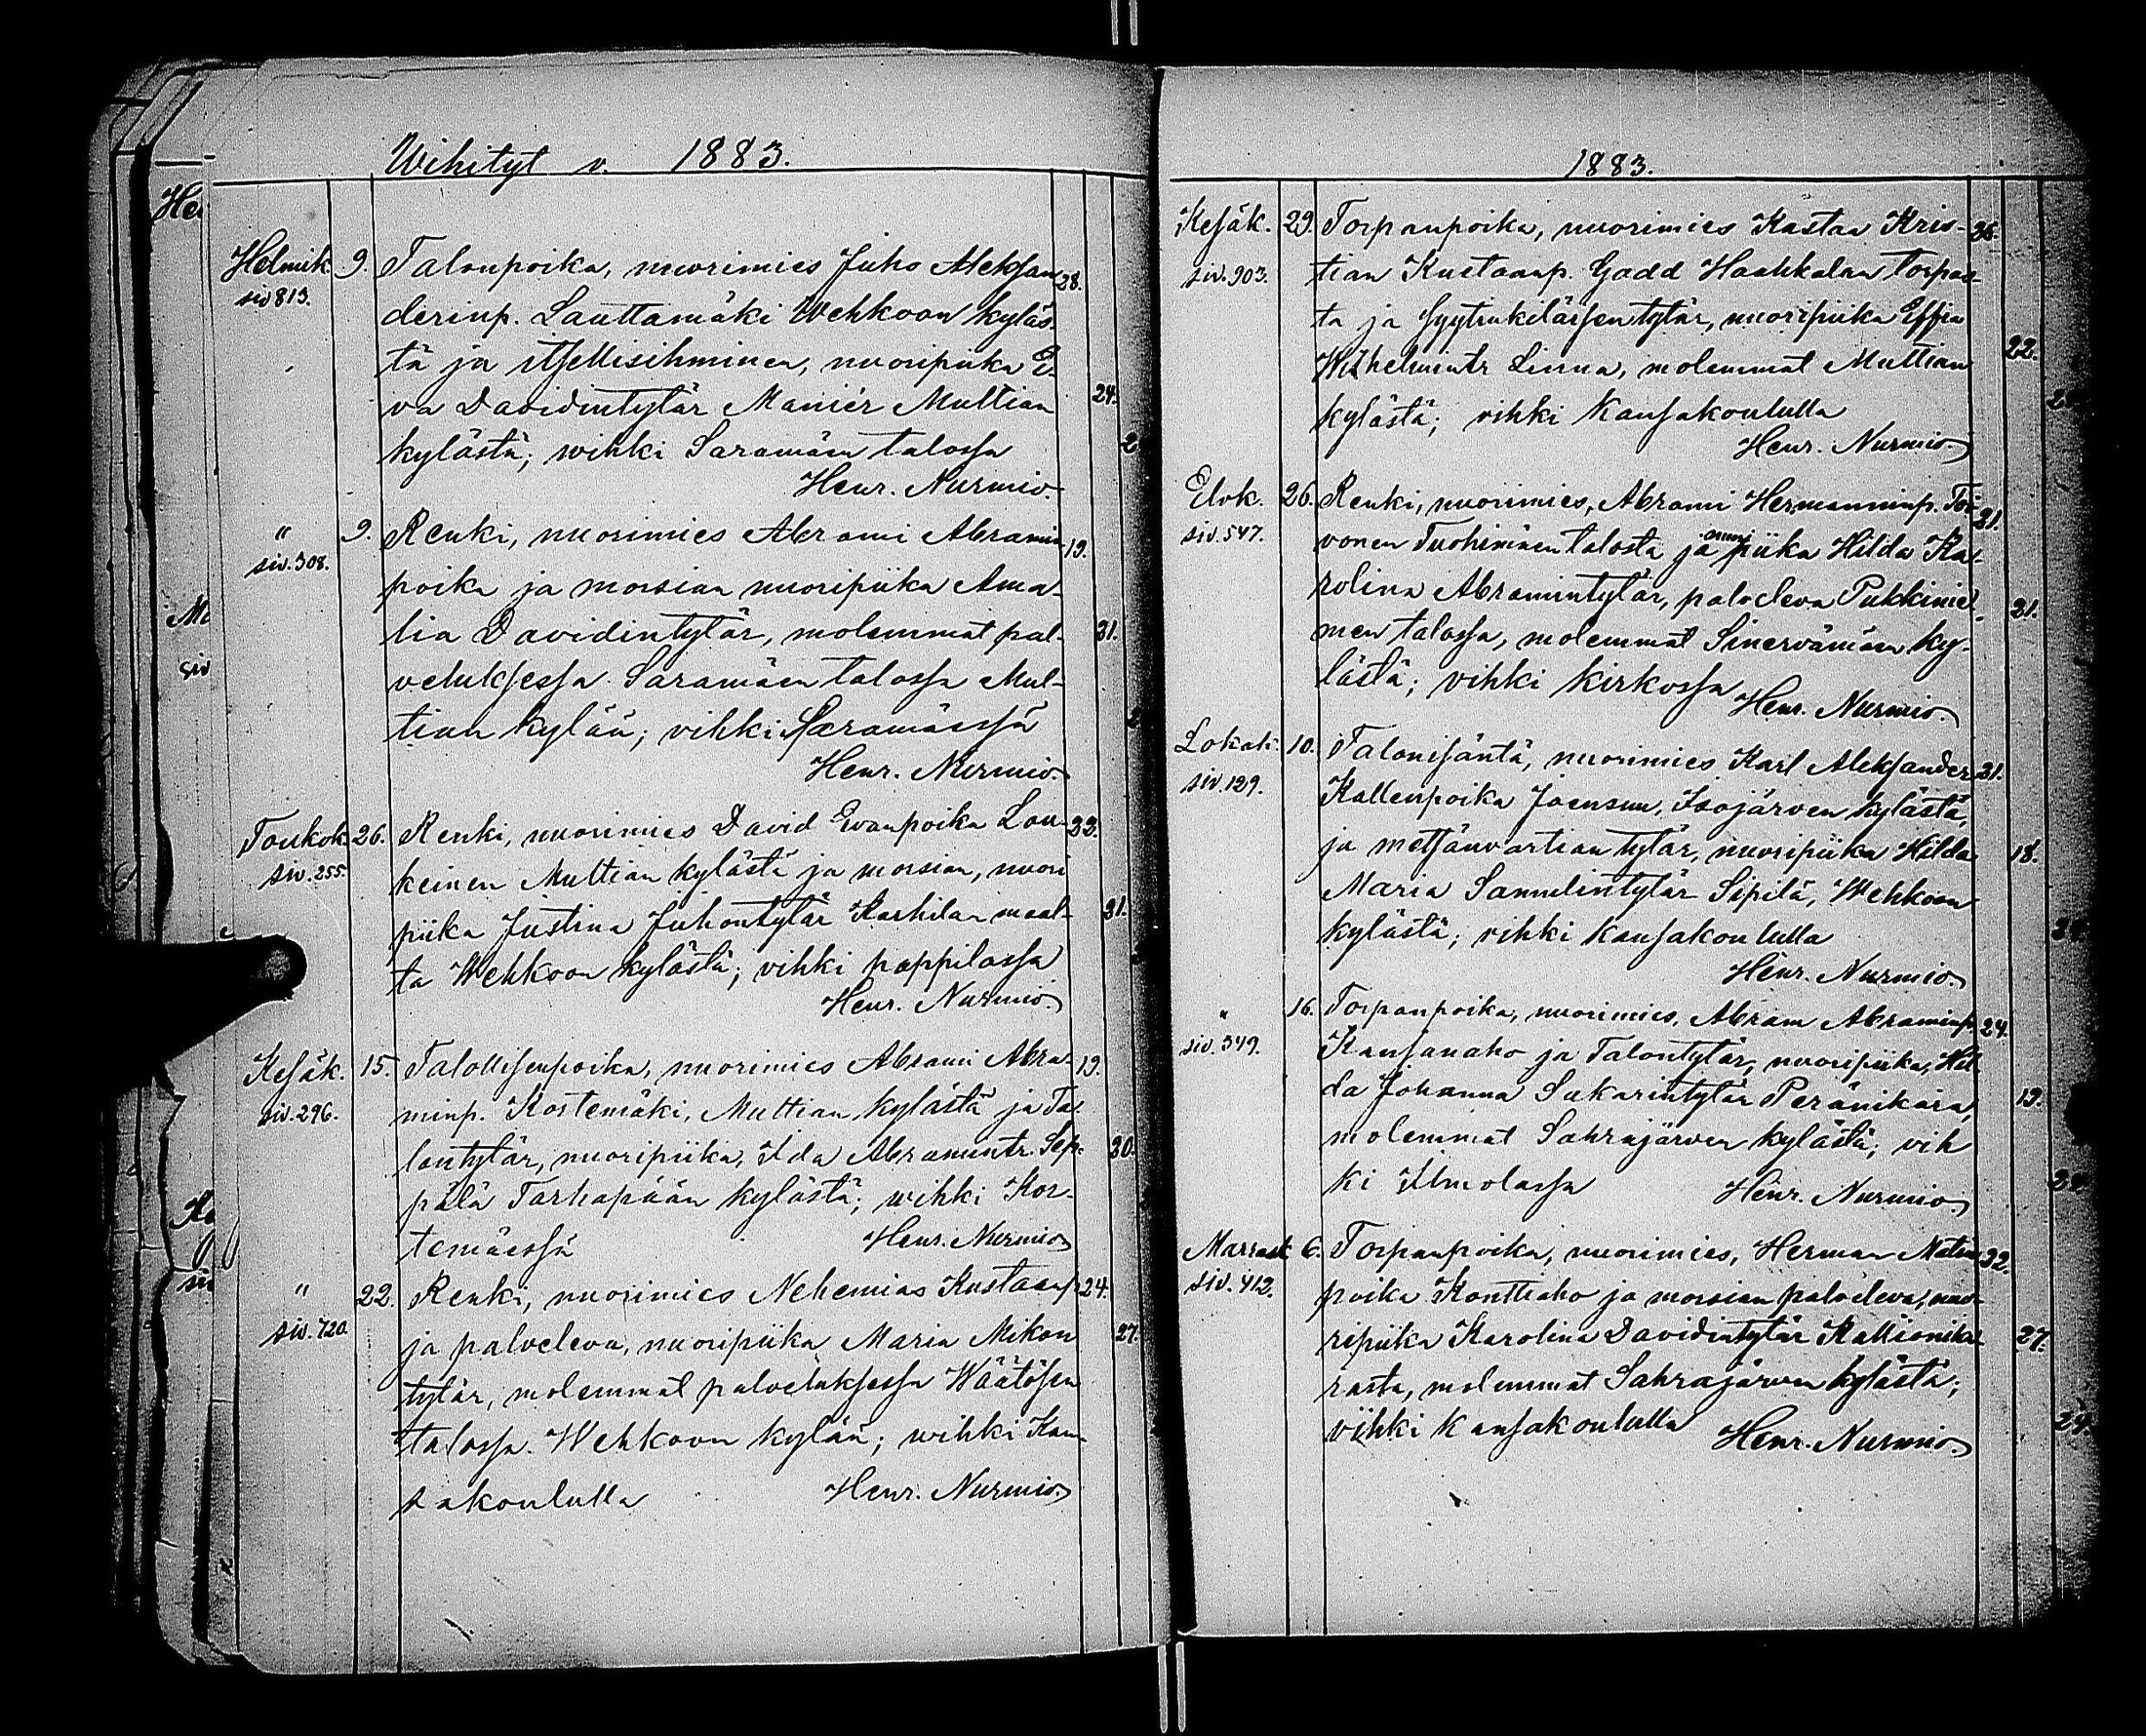 Wihityt v. 1883.
Helmik. 9. Talonpoika, nuorimies Juho Aleksan 28.
siv 813. derinp. Lauttamäki Wehkoon kyläs-
tä ja itsellisihminen, nuoripiika E-
va Davidintytär Maniér Multian 24.
kylästä; wihki Saramäen talossa
Henr. Nurmio.
" 9. Renki, nuorimies Abrami Abramin 19.
siv. 308. poika ja morsian nuoripiika Ama-
lia Davidintytär, molemmat pal- 21.
veluksessa Saramäen talossa Mul-
tian kylää; vihki Saramäessä
Henr. Nurmio.
Toukok. 26. Renki, nuorimies David Ewanpoika Lou-
siv. 255. keinen Multian kylästä ja morsian, nuori
piika Justina Juhontytär Karhilan maal-
ta Wehkoon kylästä; vihki pappilassa
Henr. Nurmio
Kesäk. 15. Talollisenpoika, nuorimies Abrami Abra- 19.
siv. 296. minp. Kortemäki, Multian kylästä ja Ta-
lontytär, nuoripiika, Ida Abramintr. Sep- 20.
pälä Tarhapään kylästä; wihki Kor-
temäessä Henr. Nurmio
" 22. Renki, nuorimies Nehemias Kustaanp 24.
siv. 720 ja palveleva, nuoripiika Maria Mikon 27.
tytär, molemmat palveluksessa Wäätösen
talossa Wehkoon kylää; wihki Kan-
sakoululla Henr. Nurmio
1883.
Kesäk. 29. Torpanpoika, nuorimies Kustaa Kris- 36.
siv. 903. tian Kustaanp. Gadd Haahkalan torpas-
ta ja Syytinkiläisen tytär, nuoripiika Effia
Wilhelmintr Linna, molemmat Multian 22.
kylästä; vihki Kansakoululla
Henr. Nurmio
Elok. 26. Renki, nuorimies, Abrami Hermanninp. Toi- 21.
siv. 547. vonen Tuohimäen talosta ja piika Hilda Ka-
rolina Abramintytär, palveleva Pukkinie- 21.
men talossa, molemmat Sinervämäen ky-
lästä; vihki kirkossa
Henr. Nurmio.
Lokak. 10. Talonisäntä, nuorimies Karl Aleksander 21.
siv. 129. Kallenpoika Joensuu, Isojärven kylästä,
ja metsänvartian tytär, nuoripiika Hilda 18.
Maria Samulintytär Sipilä, Wehkoon
kylästä; vihki kansakoululla
Henr. Nurmio.
" 16. Torpanpoika, nuorimies, Abram Abraminp 24.
siv. 349. Kansanaho ja Talontytär, nuoripiika, Hil
da Johanna Sakarintytär Peränikara, 19.
molemmat Sahrajärven kylästä; vih
ki Ilmolassa Henr. Nurmio
Marrask 6. Torpanpoika, nuorimies, Herman 32.
siv. 412. poika Konttiaho ja morsian palveleva, nuo-
ripiika Karolina Davidintytär Kallionika- 27.
rasta, molemmat Sahrajärven kylästä;
vihki kansakoululla Henr. Nurmio